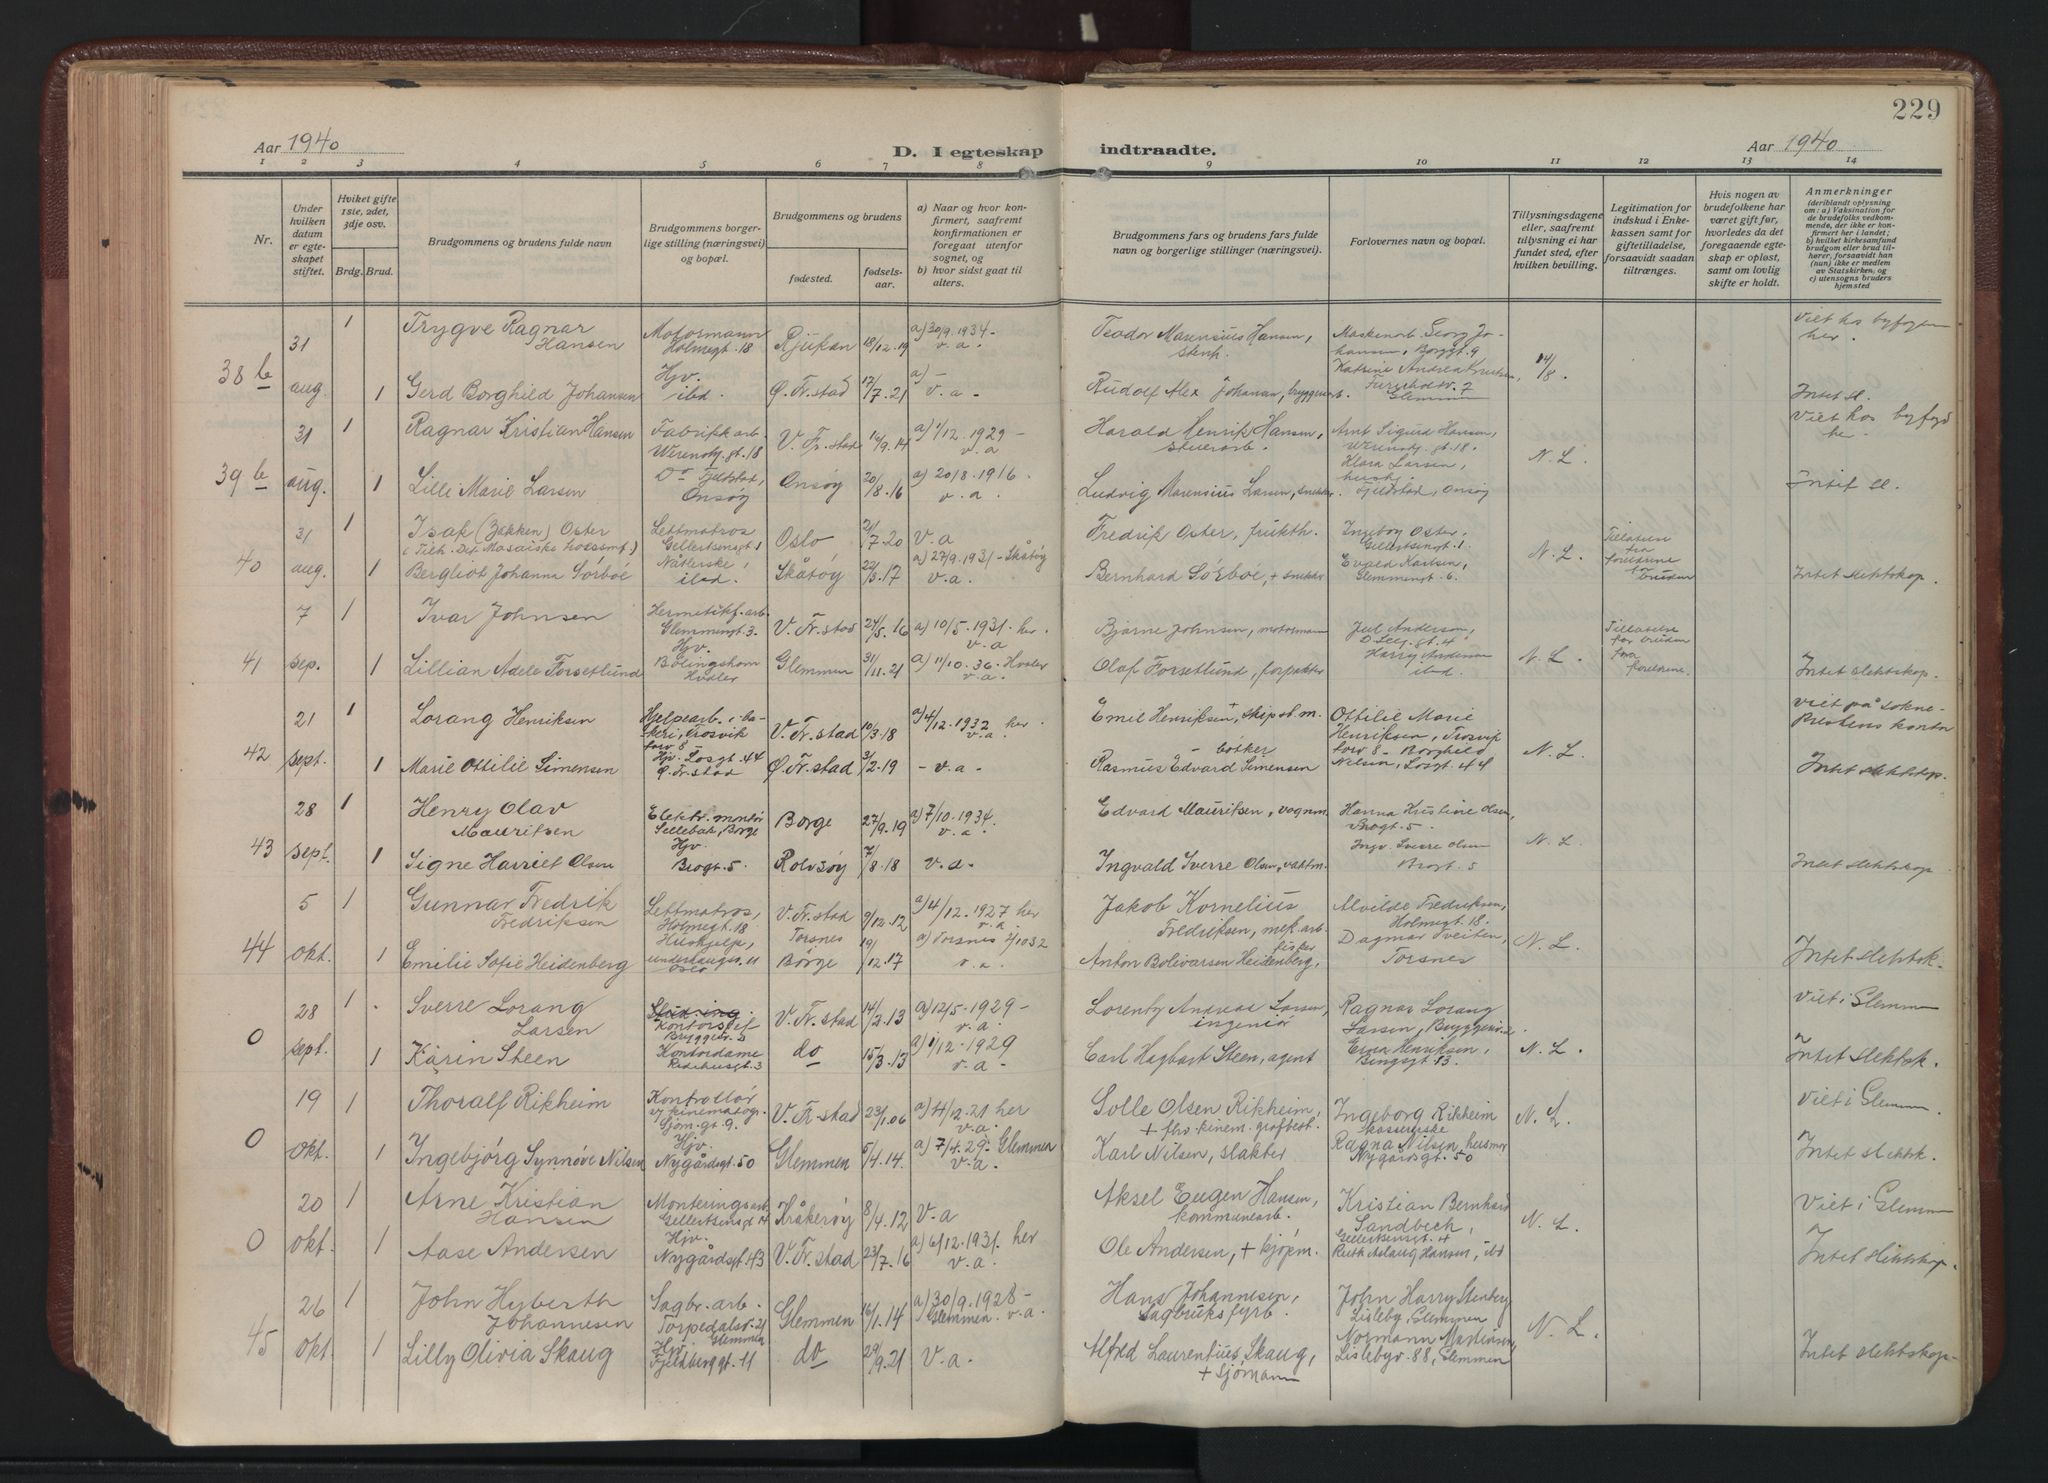 229
Aar 1940
D. I egteskap indtraadte.
Aar 1940
1 2 3 4 5 6 7 8 9 10 11 12 13 14
Nr.
Under hvilken datum er egteskapet stiftet.
Hviket gifte 1ste, 2det, 3dje osv.
Brdg. Brud.
Brudgommens og brudens fulde navn
Brudgommens borgerlige stilling (næringsvei) og bopæl.
Brudgommens og brudens
fødested.
fødselsaar.
a) Naar og hvor konfirmert, saafremt konfirmationen er foregaat utenfor sognet, og
b) hvor sidst gaat til alters.
Brudgommens fars og brudens fars fulde navn og borgerlige stillinger (næringsvei).
Forlovernes navn og bopæl.
Tillysningsdagene eller, saafremt tillysning ei har fundet sted, efter hvilken bevilling.
Legitimation for indskud i Enkekassen samt for giftetilladelse, forsaavidt saadan tiltrænges.
Hvis nogen av brudefolkene har været gift før, hvorledes da det foregaaende egteskap er opløst, samt om lovlig skifte er holdt.
Anmerkninger
(deriblandt oplysning om: a) Vaksination for de brudefolks vedkommende, der ikke er konfirmert her i landet; b) hvilket kirkesamfund brudgom eller brud tilhører, forsaavidt han (hun) ikke er medlem av Statskirken, og c) utensogns bruders hjemsted
38 b
31 aug.
1 Trygve Ragnar Hansen
Motormann Holmegt. 18
Rjukan 18/12.19
a) 30/9.1934- v.a.
Teodor Marensius Hansen,
Maskinarb Georg Johansen, Borggt. 9
14/8.
Viet hos byfogden her.
1 Gerd Borghild Johansen
Hjv. ibd.
Ø. Fr.stad 17/7.21
a) - v.a.-
Rudolf Alex Johansen, bryggearb.
Katrine Andrea Knutsen, Glemmen
Intet sl.
39 b
31 aug.
1 Ragnar Kristian Hansen
Fabrikkarb Werenskj.gt.18
V. Fr.stad 16/9.14
a) 1/12.1929- v.a
Harald Henrik Hansen,
Arnt Sigurd Hansen, Werenskj.gt.18.
N.L.
Viet hos byfgd he.
1 Lilli Marie Larsen
Do Fjeldstad, Onsøy
Onsøy 20/8.16
a) 20/8.1916. v.a.
Ludvig Marensius Larsen, snekker
Klara Larsen, Fjeldstad, Onsøy
Intet sl.
40
31 aug.
1 Isak (Zakken) Oster
(Tilh. Det Mosaiske trossamf.)
Lettmatros Gellertsensgt 1
Oslo 21/7.20
v.a
Fredrik Oster, frukth.
Ingeborg Oster, Gellertsengt. 1.
N.L.
Tillatelse fra foreldrene for bruden
1 Bergliot Johanna Sörböe
Nåtlerske, ibd.
Skåtøy 22/3.17
a) 27/9.1931- Skåtøy v.a.
Bernhard Sörböe, + snekker
Evald Karlsen, Glemmengt. 6.
Intet slektskap.
41
7 sep.
1 Ivar Johnsen
Hermetikf.arb. Glemmengt. 3.
V. Fr.stad 24/5.16
a) 10/5.1931. her. v.a
Bjarne Johnsen, motormann
Juel Andersen,
N.L.
Tillatelse for bruden fra foreldrene.
1 Lillian Adele Forsetlund
Hjv. Bølingshavn Hvaler
Glemmen 31/11.21
a) 11/10.36. Hvaler v.a.
Olaf Forsetlund, forpakter
Harry Andersen ibd.
Intet slektskap.
42
21 sept.
1 Lorang Henriksen
Hjelpearb. i bakeri, Trosvik torv 8
V. Fr.stad 10/3.18
a) 4/12.1932 her. v.a.
Emil Henriksen, + skipst.m.
Ottilie Marie Henriksen, Trosvik torv 8 -
N.L.
viet på Sogneprestens kontor
1 Marie Ottilie Simensen
Hjv. Losgt. 44 Ø. Fr.stad
Ø. Fr.stad 3/2.19
- v.a.-
Rasmus Edvard Simensen - bøtker
Borghild Nilsen, Losgt. 44
Intet slektskap.
43
28 sept.
1 Henry Olav Mauritsen
Elektr. montör Sellebak, Borge
Borge 27/9.19
a) 7/10.1934. v.a.
Edvard Mauritsen, vognm.
Hanna Kristine Olsen, Brogt. 5.
N.L.
1 Signe Harriet Olsen
Hjv. Brogt. 5.
Rolvsøy 7/8.18
v.a.
Ingvald Sverre Olsen, vaktm.
Ingv. Sverre Olsen Brogt. 5
Intet slektskap
44
5 okt.
1 Gunnar Fredrik Fredriksen
Lettmatros, Holmegt. 18
V. Fr.stad 9/12.12
a) 4/12.1927 her v.a.
Jakob Kornelius Fredriksen, mek.arb.
Alvilde Fredriksen, Holmegt. 18.
N.L.
1 Emilie Sofie Heidenberg
Hushjelp, Underhaugsv. 11 Oslo
Torsnes Borge 19/12.17
a) Torsnes 2/10 32 v.a.
Anton Bolivarsen Heidenberg, fisker
Dagmar Tveiten, Torsnes
Intet slektsk.
0
28 sept
1 Sverre Lorang Larsen
Stud. ing. Kontorsjef
V. Fr.stad 14/2.13
a) 12/5.1929- v.a.
Lorentz Andreas Larsen, ingeniör
Ragnar Lorang Larsen, Bryggeriv. 2.
N.L.
Viet i Glemmen
1 Karin Steen
Kontordame
do 15/3.13
a) 1/12.1929 v.a-
Carl Hagbart Steen, agent
Erna Henriksen, Bingsgt 13.
Intet slektsk.
0
19 okt.
1 Thoralf Rikheim
Kontrollör v/ kinematogr. Sjøm.gt 9.
V. Fr.stad 23/1.06
a) 4/12.21 her v.a.
Solle Olsen Rikheim, + fhv. kinem.grafbest.
Ingeborg Rikheim kassererske
N.L.
Viet i Glemmen.
1 Ingebjörg Synnöve Nilsen
Hjv. Nygårdsgt. 50
Glemmen 5/4.14.
a) 7/4.29- Glemmen v.a.
Karl Nilsen, slakter
Ragna Nilsen, husmor Nygårdsgt. 50
Intet slektsk.
0
20 okt.
1 Arne Kristian Hansen
Monteringsarb. Gellertsensgt 4
Kråkerøy 8/4.12
v.a
Aksel Eugen Hansen, kommunearb.
Kristian Bernhard Sandbech, Gellertsensgt. 4
N.L.
Viet i Glemmen
1 Aase Andersen
Hjv. Nygårdsgt. 43
V. Fr.stad 23/7.16
a) 6/12.1931. her v.a.
Ole Andersen, + sjøm.
Ruth Aslaug Hansen, ibd
Intet slektskap.
45
26 okt.
1 John Hyberth Johannesen
Sagbr.arb. Torpedalsv. 21 Glemmen
Glemmen 16/1.14
a) 30/9.1928- Glemmen. v.a.
Hans Johannesen, Sagbruksfyrb.
John Harry Stenberg Lisleby, Glemmen
N.L.
1 Lilly Olivia Skaug
Hjv. Fjeldberggt. 11
do 29/9.21
v.a.
Alfred Laurentius Skaug, + sjömann
Normann Martinsen, Lislebyv. 88, Glemmen
Intet slektskap-